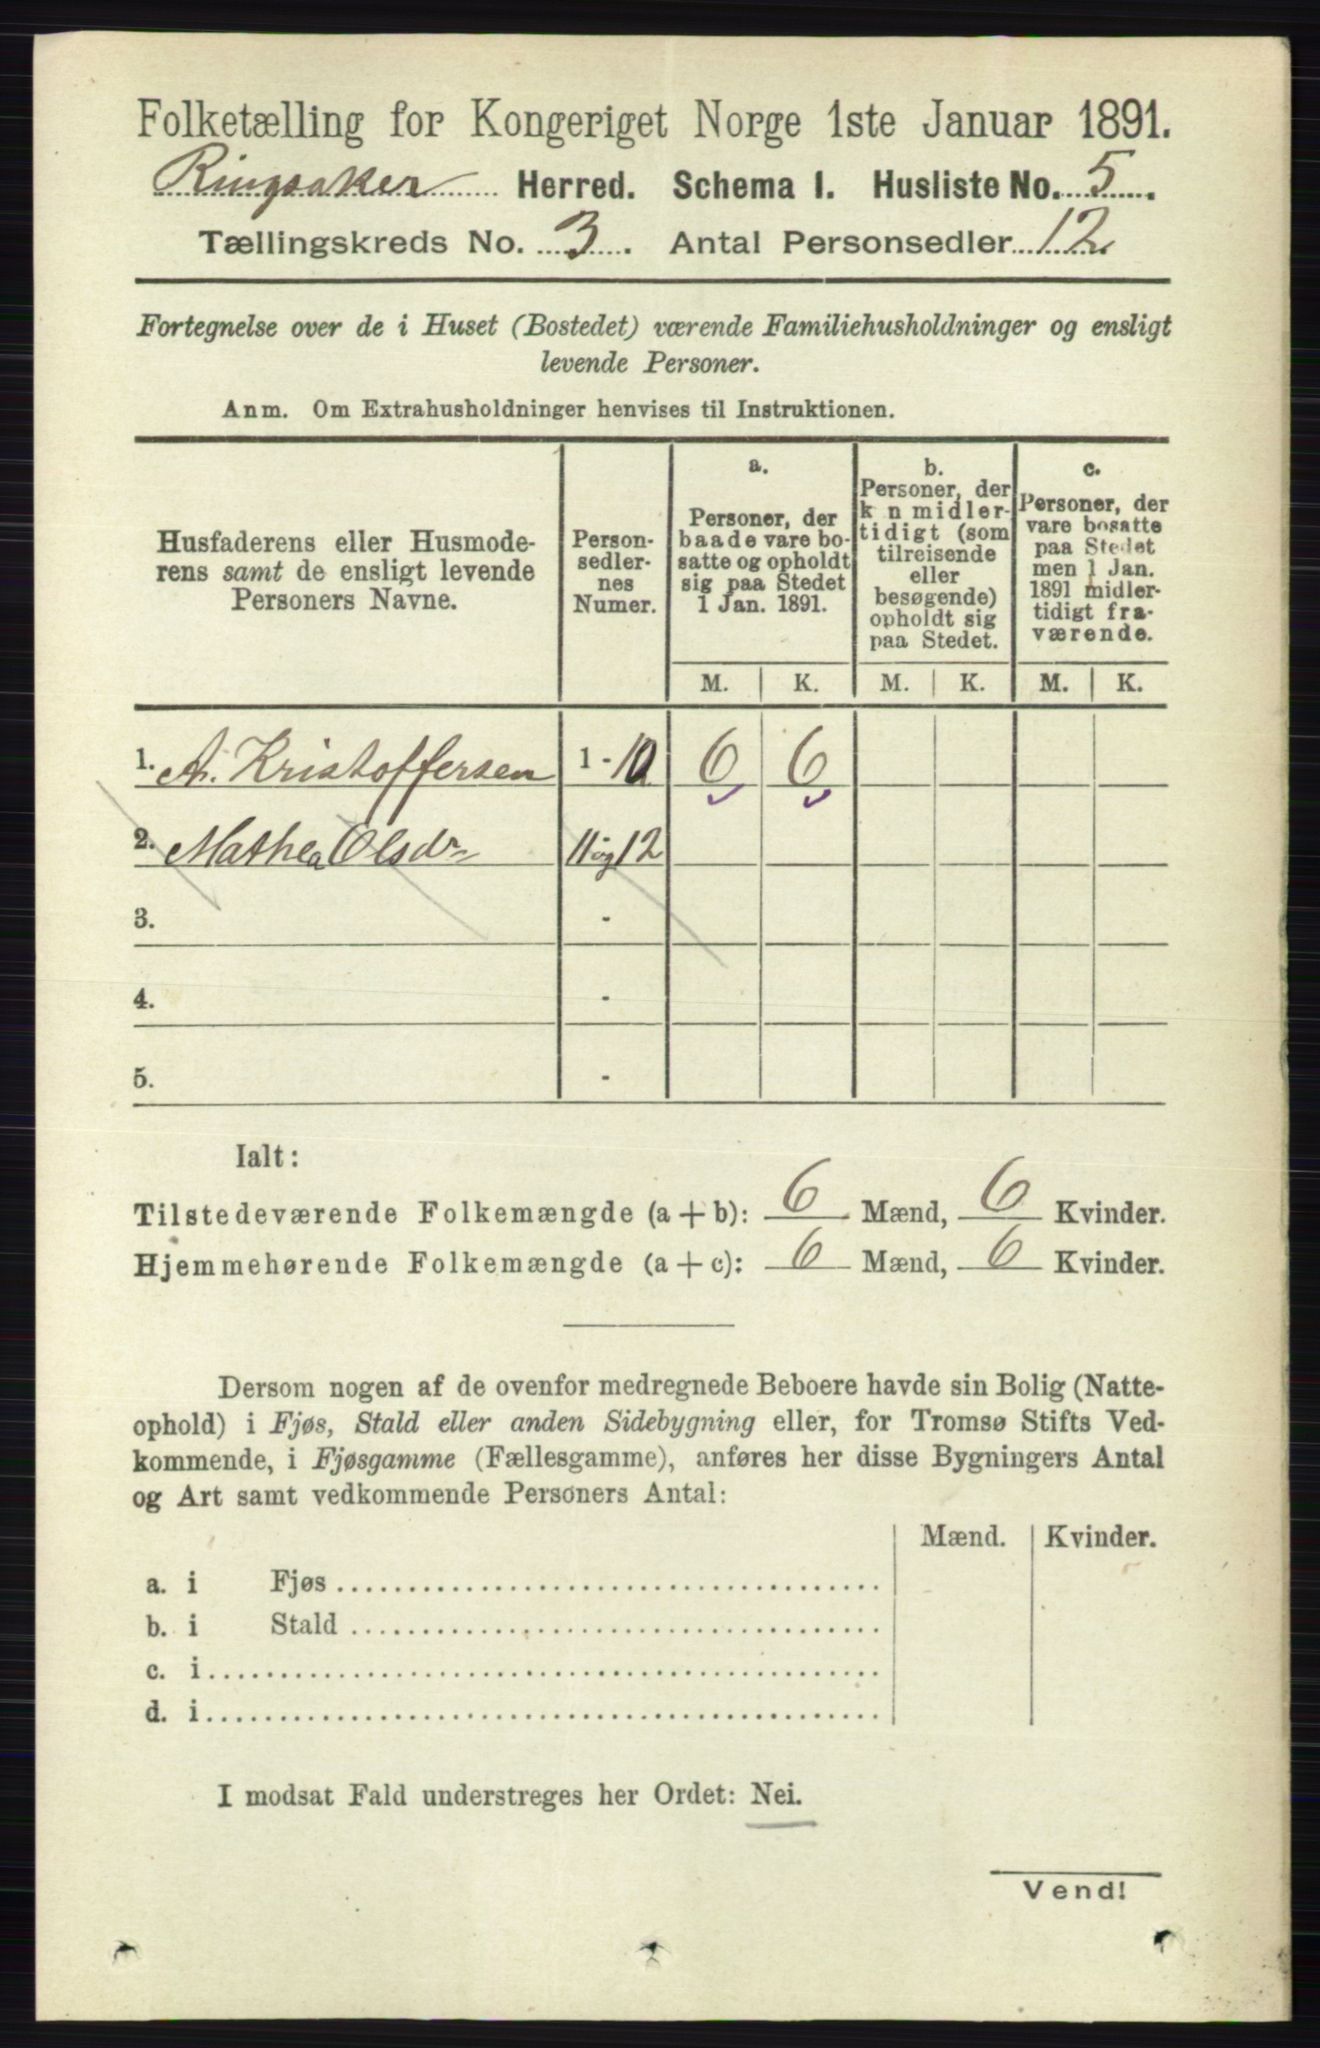 Folketælling for Kongeriget Norge 1ste Januar 1891.
Ringsaker Herred. Schema I. Husliste No. 5.
Tællingskreds No. 3. Antal Personsedler 12.
Fortegnelse over de i Huset (Bostedet) værende Familiehusholdninger og ensligt
levende Personer.
Anm. Om Extrahusholdninger henvises til Instruktionen.
Husfaderens eller Husmode-
rens samt de ensligt levende
Personers Navne.
Person-
sedler-
nes
Numer.
a.
Personer, der
baade vare bo-
satte og opholdt
sig paa Stedet
1 Jan. 1891.
b.
Personer, der
k n midler-
tidigt (som
tilreisende
eller
besøgende)
opholdt sig
paa Stedet.
c.
Personer, der
vare bosatte
paa Stedet
men 1 Jan.
1891 midler-
tidigt fra-
værende.
M. K. M. K. M. K.
1. A. Kristoffersen 1 - 10 6 6
2. Mathea Olsdr 11 og 12
3. -
4. -
5. -
Ialt:
Tilstedeværende Folkemængde (a + b): 6 Mænd, 6 Kvinder.
Hjemmehørende Folkemængde (a + c): 6 Mænd, 6 Kvinder.
Dersom nogen af de ovenfor medregnede Beboere havde sin Bolig (Natte-
ophold) i Fjøs, Stald eller anden Sidebygning eller, for Tromsø Stifts Ved-
kommende, i Fjøsgamme (Fællesgamme), anføres her disse Bygningers Antal
og Art samt vedkommende Personers Antal:
Mænd. Kvinder.
a. i Fjøs
b. i Stald
c. i
d. i
I modsat Fald understreges her Ordet: Nei.
Vend!